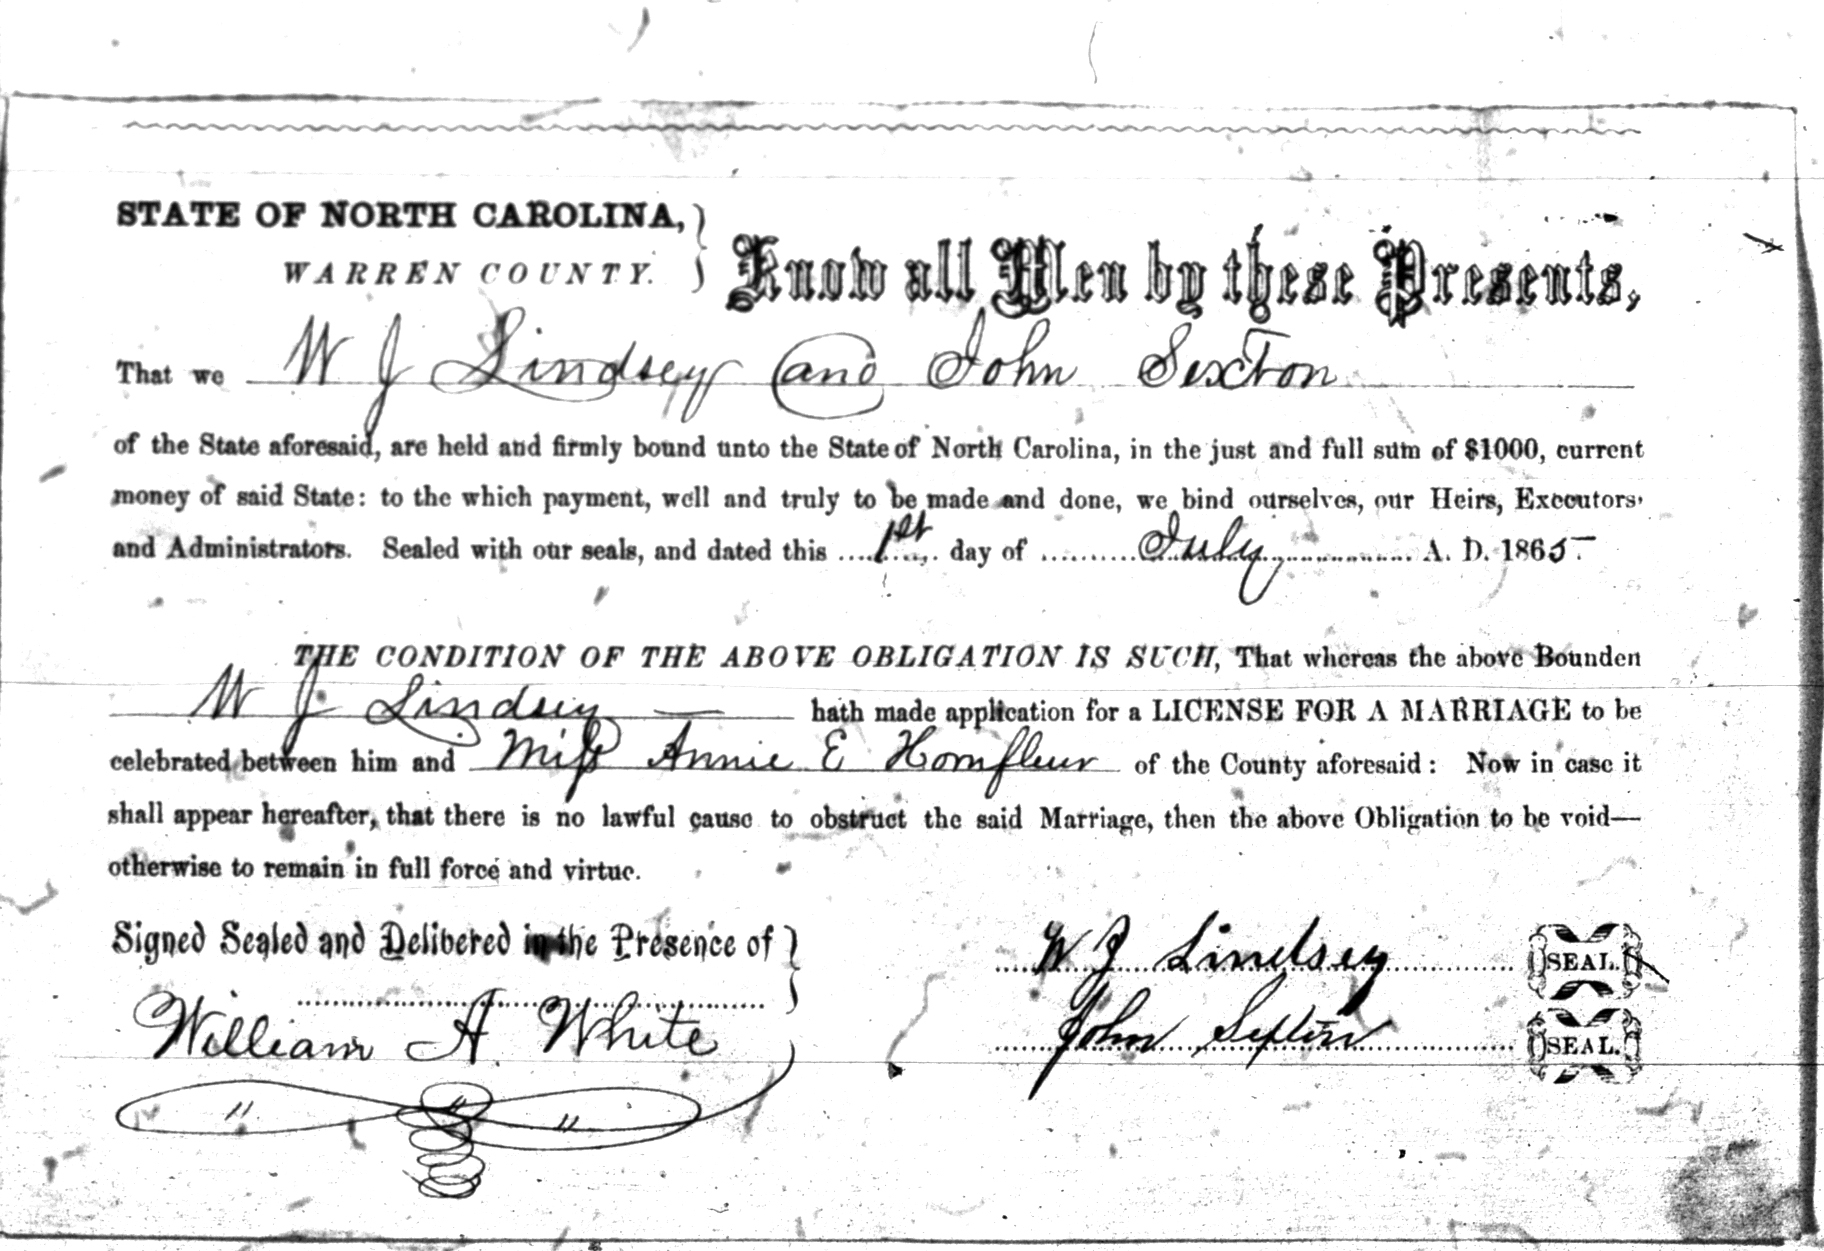 STATE OF NORTH CAROLINA,
WARREN COUNTY.
Know all Men by these Presents,
That we W J Lindsey and John Sexton
of the State aforesaid, are held and firmly bound unto the State of North Carolina, in the just and full sum of $1000, current
money of said State: to the which payment, well and truly to be made and done, we bind ourselves, our Heirs, Executors,
and Administrators. Sealed with our seals, and dated this 1st day of July A. D. 1865
THE CONDITION OF THE ABOVE OBLIGATION IS SUCH, That whereas the above Bounden
W J Lindsey hath made application for a LICENSE FOR A MARRIAGE to be
celebrated between him and Miss Annie E Hornfleur of the County aforesaid: Now in case it
shall appear hereafter, that there is no lawful cause to obstruct the said Marriage, then the above Obligation to be void—
otherwise to remain in full force and virtue.
Signed Sealed and Delibered in the Presence of
W J Lindsey SEAL.
William A White
John Sexton SEAL.